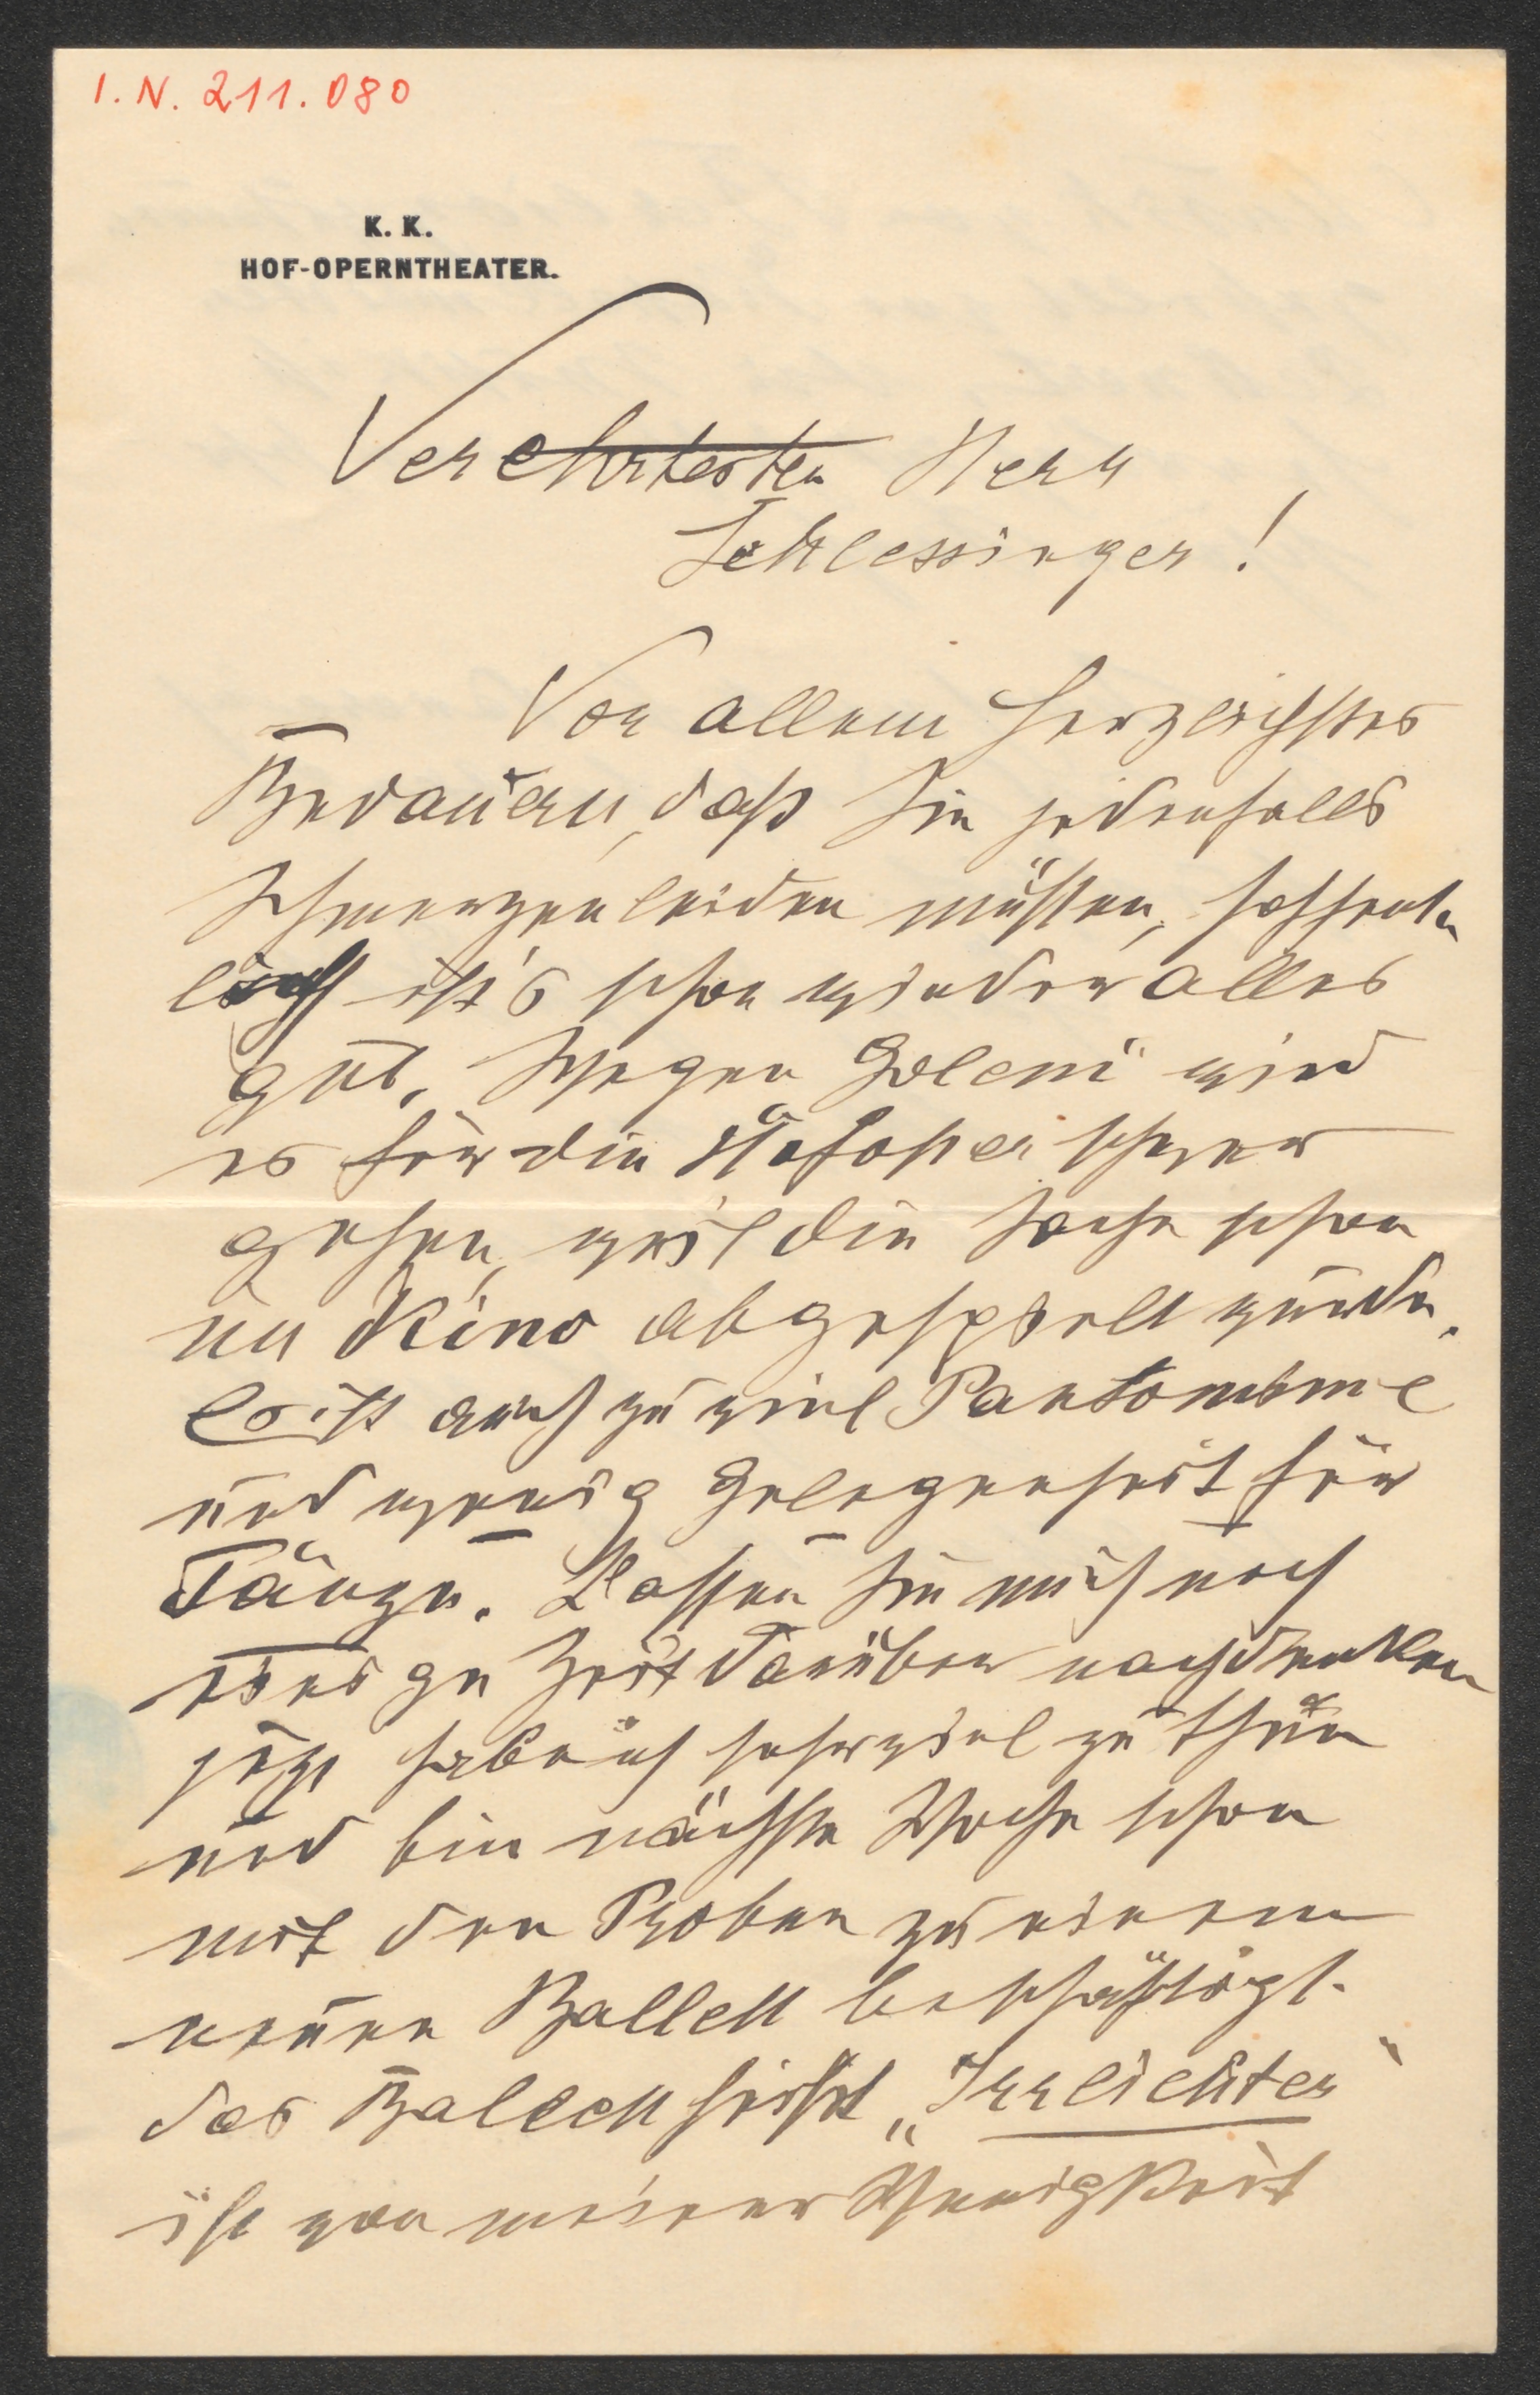 I. N. 211.080
K. K.
HOF-OPERNTHEATER.
Verehrtester Herr
Schlessinger!
Vor allem herzlichstes
Bedauern, daß Sie jedenfalls
Schmerzen leiden mußten, hoffent
lich ist's schon wieder alles
gut. Wegen Golem wird
es für die Hofoper schwer
gehen, weil die Sache schon
im Kino abgespielt wurde.
Es ist auch zu viel Pantomime
und wenig Gelegenheit für
Tänze. Lassen Sie mich noch
einige Zeit darüber nachdenken
jetzt habe ich sehr viel zu thun
und bin nächste Woche schon
mit den Proben zu einem
neuen Ballett beschäftigt.
das Ballett heißt „Irrlichter"
ist von meiner Wenigkeit